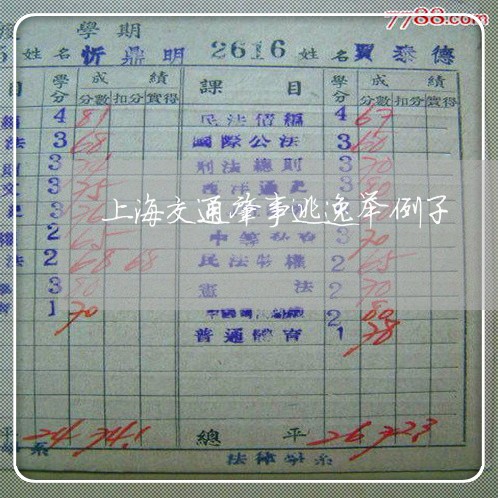 7788.com
學期
5 姓名 忻鼎明 2616 姓名 賈泰德
目 學分 成績 課目 學分 成績
分數 扣分 實得 分數 扣分 實得
4 81 民法債編 4 67
法 3 68 國際公法 3 60
3 刑法總則 3 70
3 75 3
上海交通肇事逃逸举例子
2 65 3 70
法 2 68 68 民法物權 2 65
3 80 憲法 2 70
1 70 2 80
普通體育 1 78
平 24 74.1 總平 26 72.3
系 法律學系